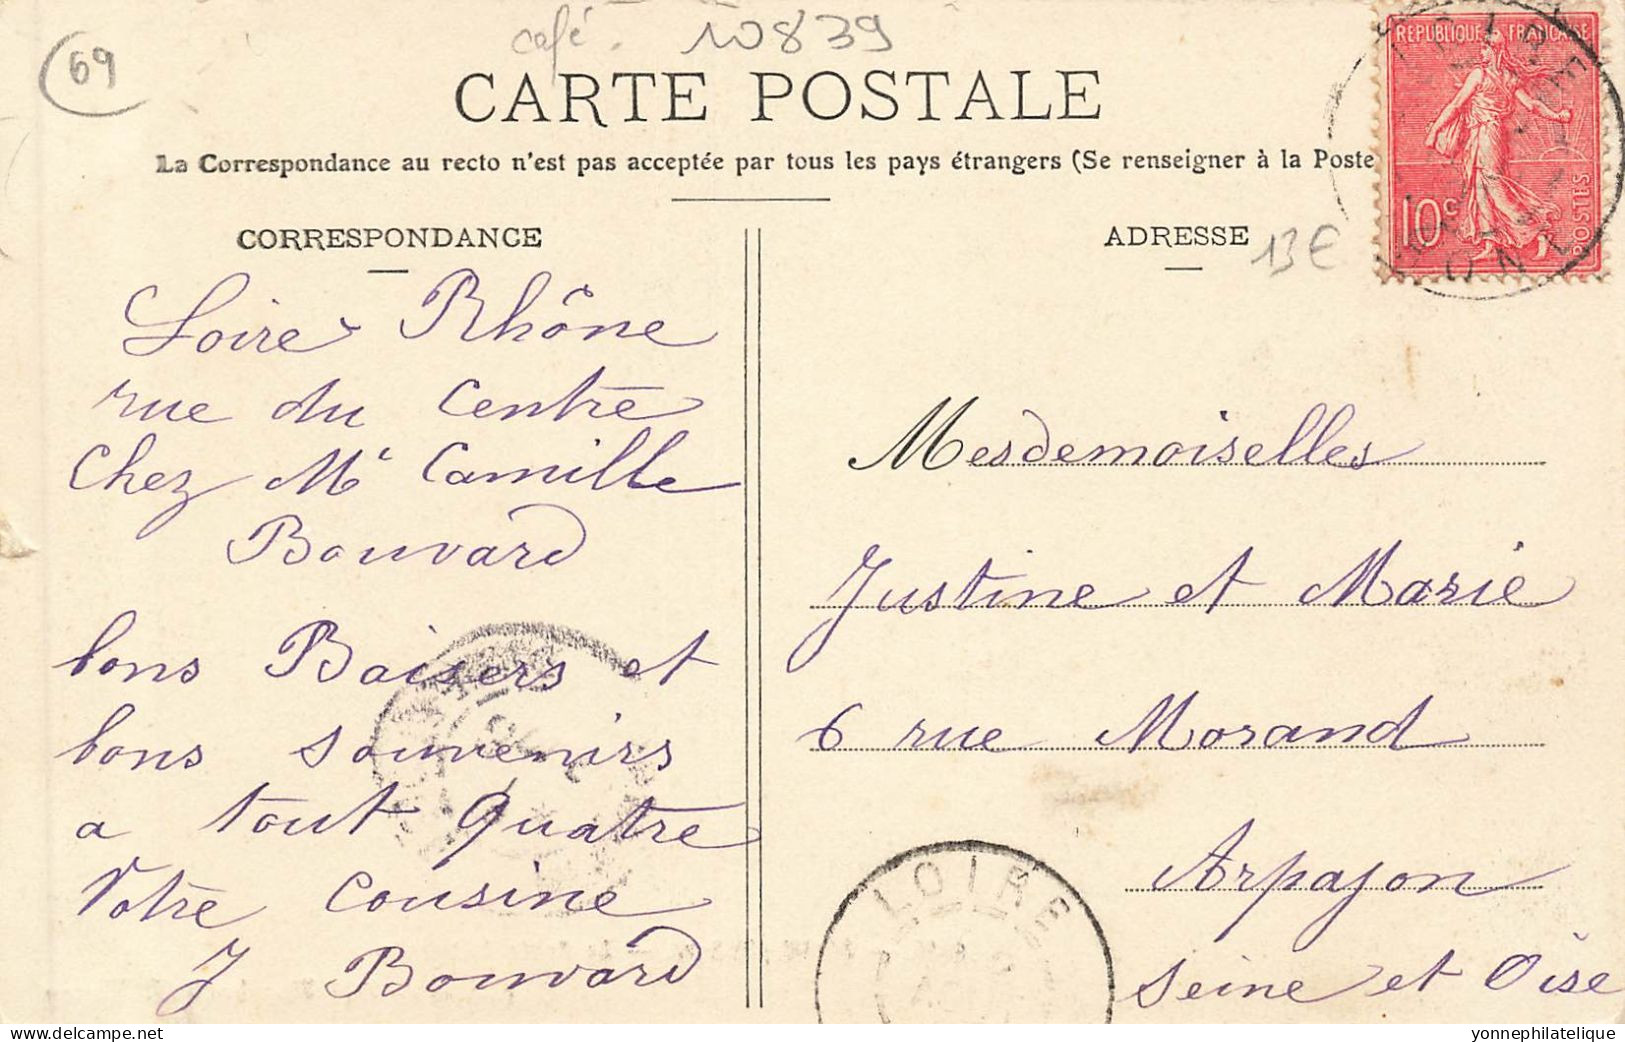 69
café. 10839
CARTE POSTALE
La Correspondance au recto n'est pas acceptée par tous les pays étrangers (Se renseigner à la Poste
REPUBLIQUE FRANÇAISE
10c
POSTES
CORRESPONDANCE
Loire Rhône
rue du Centre
Chez Mr Camille
Bouvard
bons Baisers et
bons souvenirs
a tout Quatre
Votre Cousine
J Bouvard
ADRESSE
13€
Mesdemoiselles
Justine et Marie
6 rue Morand
Arpajon
Seine et Oise
LOIRE
yonnephilatelique